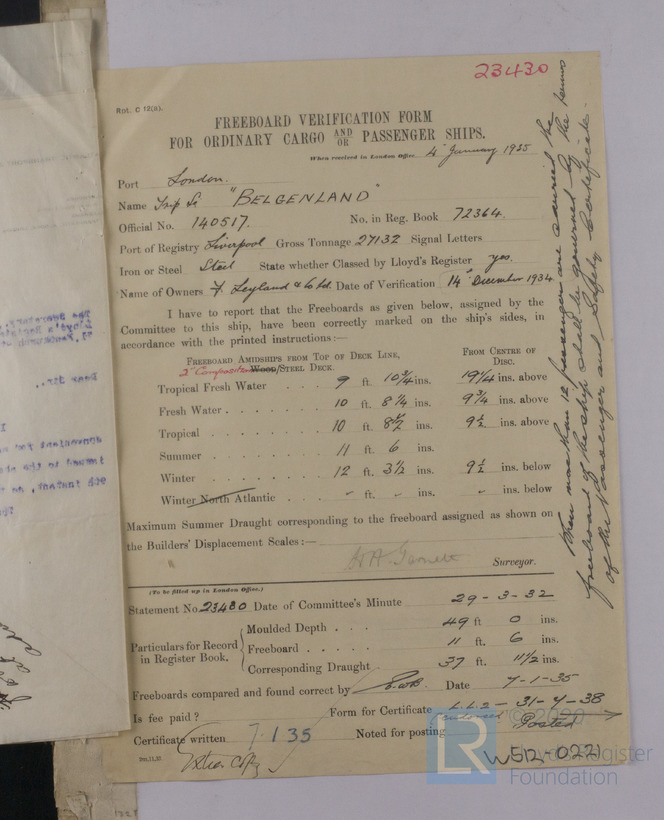 23430
Rot. C 12(a).
FREEBOARD VERIFICATION FORM
FOR ORDINARY CARGO AND/OR PASSENGER SHIPS.
When received in London Office, 4 January 1935
Port London.
Name "BELGENLAND"
Official No. 140517. No. in Reg. Book 72364.
Port of Registry Liverpool Gross Tonnage 27132 Signal Letters
Iron or Steel Steel State whether Classed by Lloyd's Register yes.
Name of Owners F. Leyland & Co Ltd. Date of Verification 14 December 1934
I have to report that the Freeboards as given below, assigned by the
Committee to this ship, have been correctly marked on the ship's sides, in
accordance with the printed instructions:—
FREEBOARD AMIDSHIPS FROM TOP OF DECK LINE, FROM CENTRE OF
2" Composition Wood/STEEL DECK. DISC.
Tropical Fresh Water 9 ft. 10 3/4 ins. 19 1/4 ins. above
Fresh Water . . . . . 10 ft. 8 1/4 ins. 9 3/4 ins. above
Tropical . . . . . 10 ft. 8 1/2 ins. 9 1/2 ins. above
Summer . . . . . 11 ft. 6 ins.
Winter . . . . . 12 ft. 3 1/2 ins. 9 1/2 ins. below
Winter North Atlantic . . . - ft. - ins. - ins. below
Maximum Summer Draught corresponding to the freeboard assigned as shown on
the Builders' Displacement Scales:—
Surveyor.
(To be filled up in London Office.)
Statement No. 23430 Date of Committee's Minute 29-3-32
Particulars for Record in Register Book.
Moulded Depth . . . . 49 ft 0 ins.
Freeboard . . . . . 11 ft. 6 ins.
Corresponding Draught . 37 ft. 11 1/2 ins.
Freeboards compared and found correct by Date 7-1-35
Is fee paid? Form for Certificate L.L.2 - 31-7-38
endorsed Posted
Certificate written 7 1 35 Noted for posting
Extra Copy
W512-0221
When more than 12 passengers are carried the
freeboard of the ship shall be governed by the terms
of the Passenger and Safety Certificate.
© 2020
LR
Lloyd's Register
Foundation
The Secretary,
Lloyd's Register
Dear Sir,